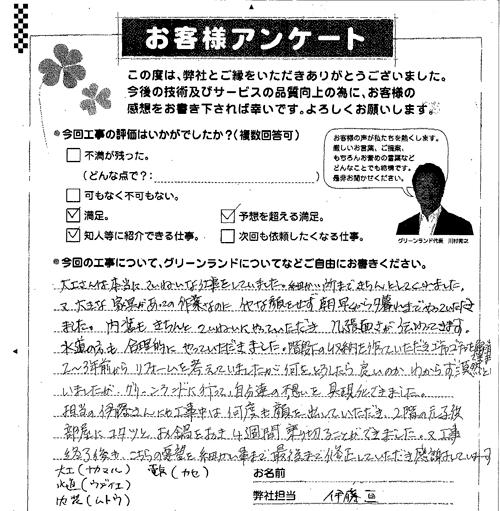 お客様アンケート
この度は、弊社とご縁をいただきありがとうございました。
今後の技術及びサービスの品質向上の為に、お客様の
感想をお書き下されば幸いです。よろしくお願いします。
今回工事の評価はいかがでしたか?(複数回答可)
□不満が残った。
(どんな点で?:
□可もなく不可もない。
☑満足。
☑予想を超える満足。
☑知人等に紹介できる仕事。
□次回も依頼したくなる仕事。
お客様の声が私たちを熱くします。
厳しいお言葉、ご提案、
もちろんお褒めの言葉など
どんなことでも結構です。
是非お聞かせください。
グリーンランド代表
今回の工事について、グリーンランドについてなどご自由にお書きください。
大工さんは本当にていねいな仕事をしていました。細かい所まできちんとしてくれました。
又、大きな家具があっての作業なのに、いやな顔をせず朝早くから夕暮れまでやっていただき
ました。内装もきちんとていねいにやっていただき、几帳面さが伝わってきます。
水道の方も合理的にやっていただきました。階段下の収納を作っていただき
2〜3年前からリフォームを考えていましたが何をどうしたら良いのかわからず
いましたが、グリーンランドに行って、自分達の想いを具現化できました。
担当の伊藤さんにも工事中は何度も顔を出していただき、2階の
部屋にコタツとお鍋をおき4週間乗り切ることができました。又工事
終了後も、こちらの要望を細かい事まで最後まで修正していただき感謝しています
大工(サカマル) 電気(カセ)
水道(ウブイエ)
内装(ムトウ)
お名前
弊社担当 伊藤